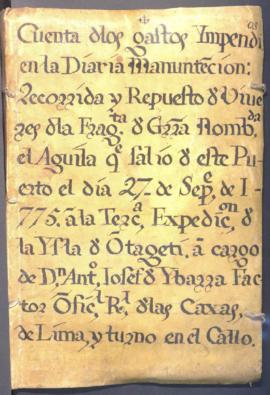 ✠
Cuenta dlos gastos Ympendos
en la Diaria Manuntecion:
Recorrida y Repuesto d Vive
res dla Fragta d Grra Nombda
el Aguila qe salio d este Pu-
erto el dia 27 de Sepe d I-
775. â la Terca Expedicon d
la Ysla d Otageti, â cargo
de Dn Anto Iosef d Ybarra Fac
tor Ofici Rl dlas Caxas,
de Lima, y turno en el Callo.